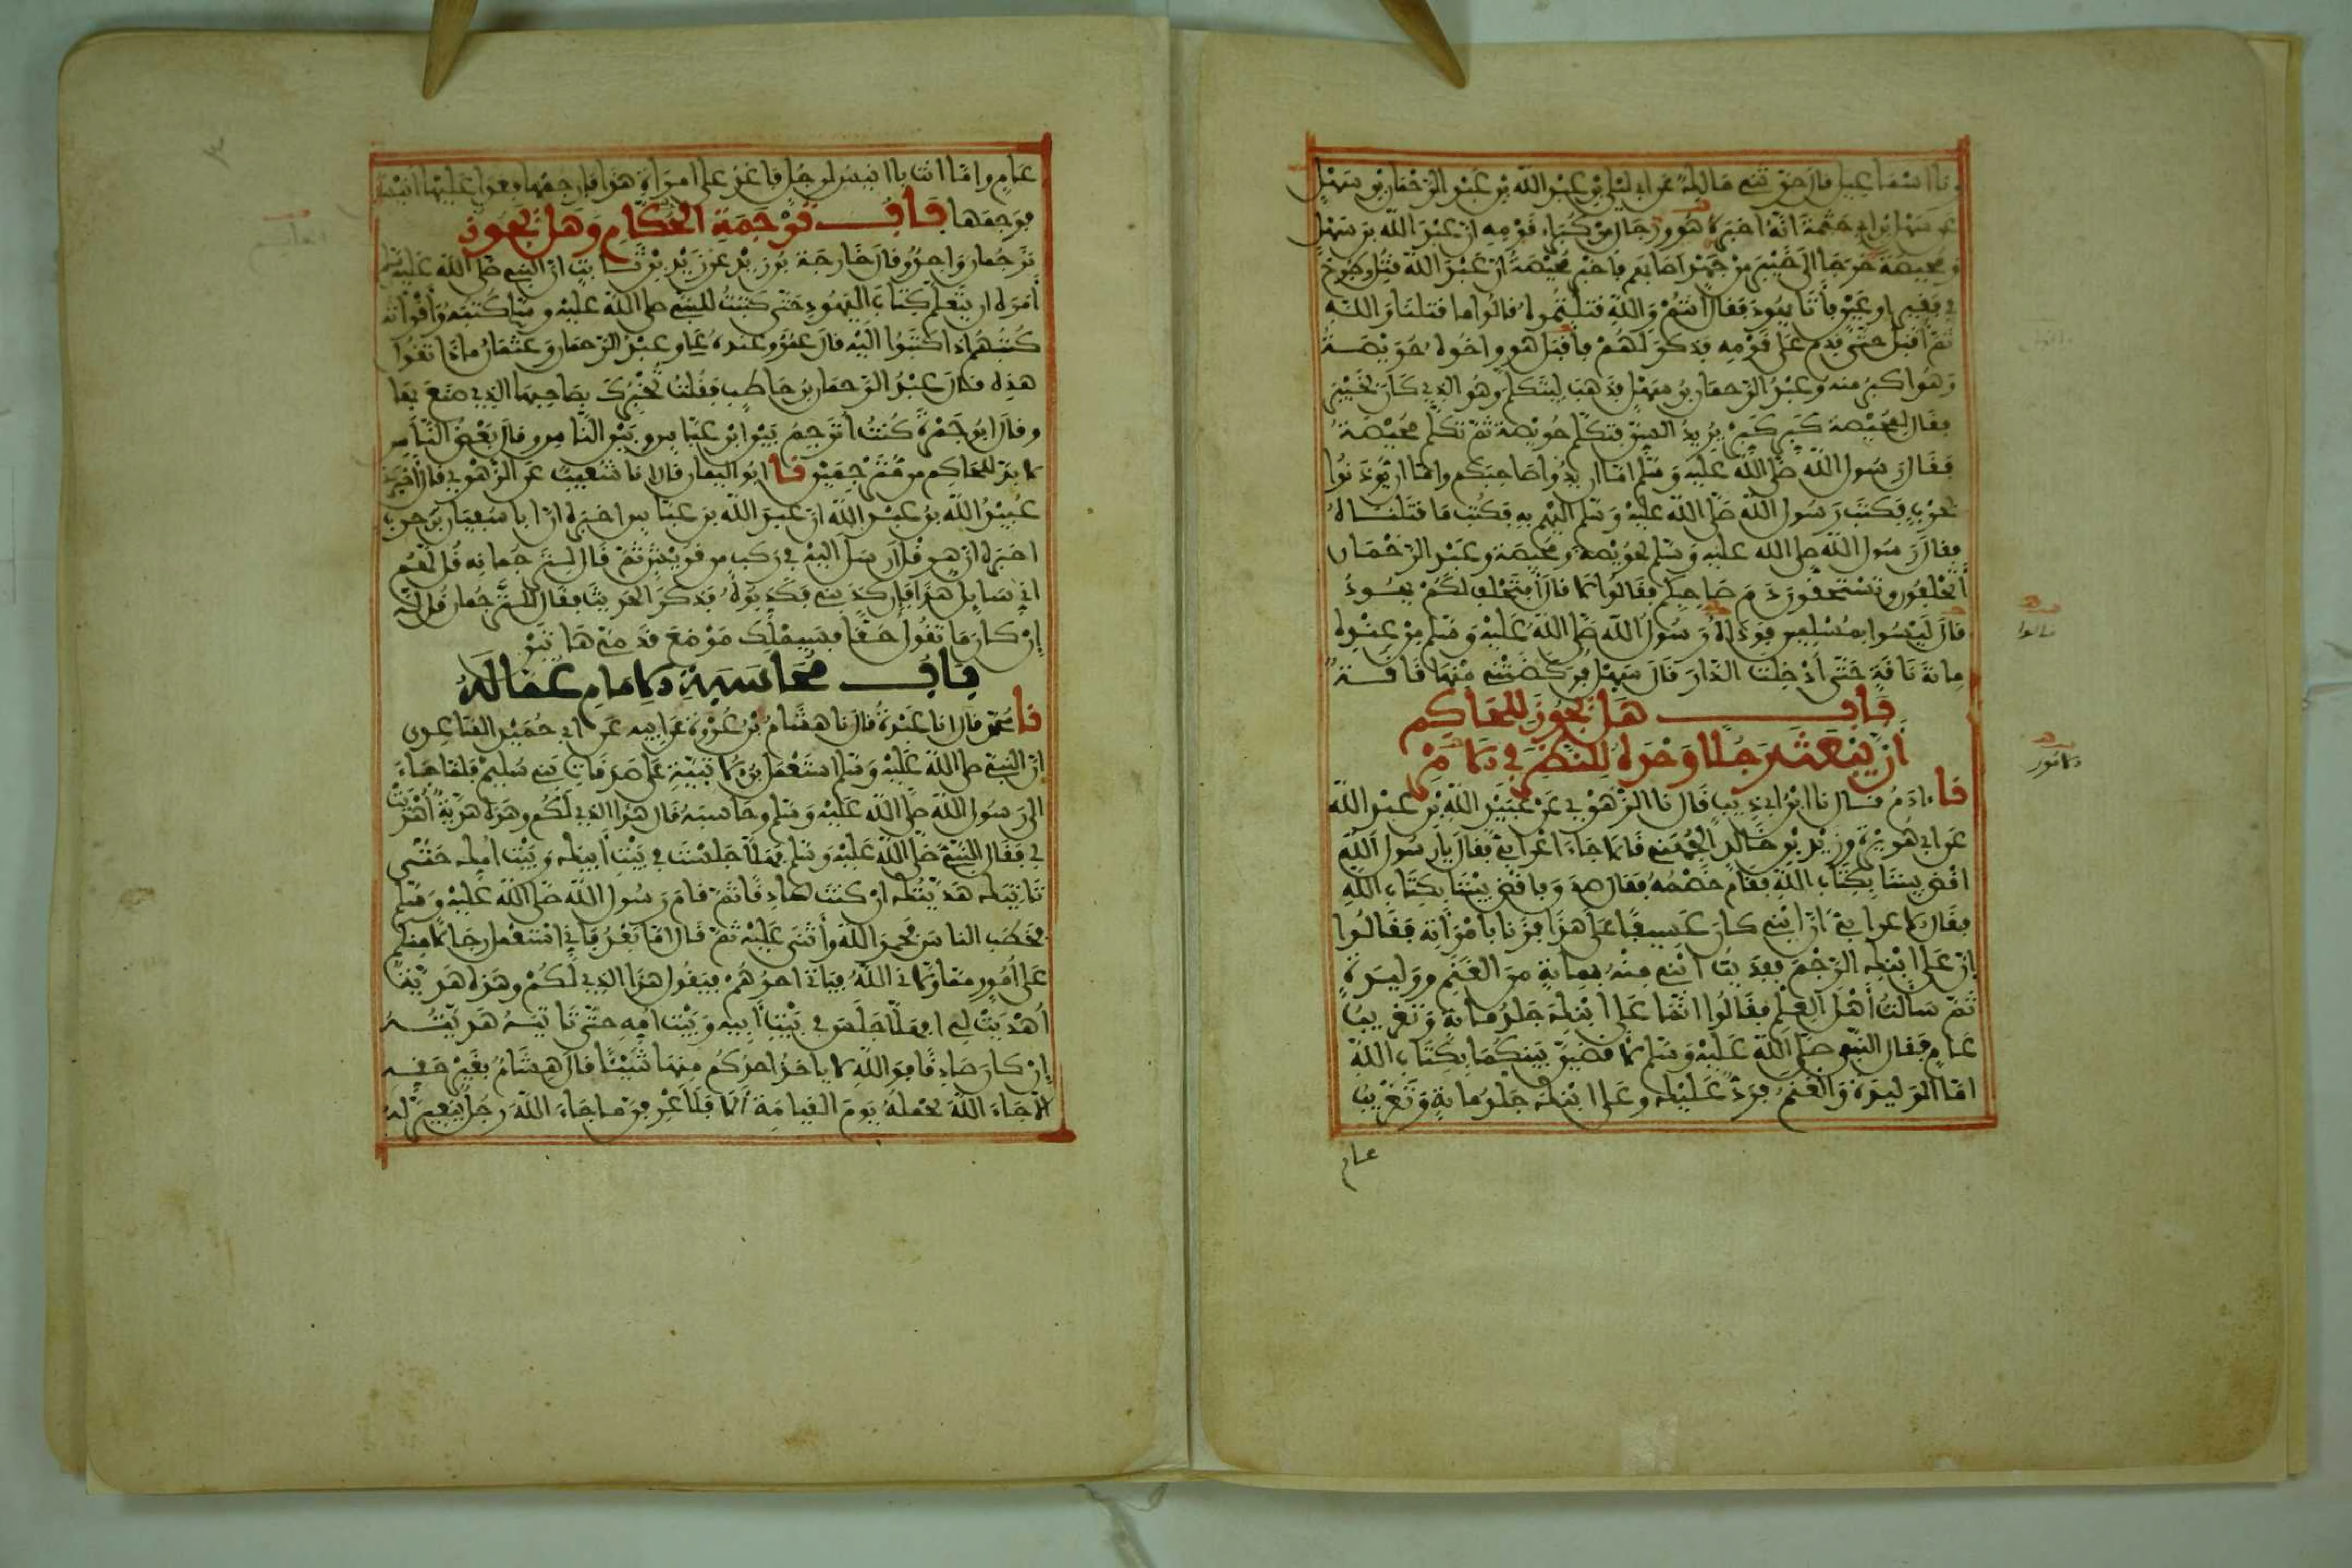 ونا اسماعيل قال حدثني مالك عن ابي ليلى بن عبد الله بن عبد الرحمان بن سهل
عن سهل بن ابي حثمة انه اخبره هو ورجال من كبراء قومه ان عبد الله بن سهل
ومحيصة خرجا الى خيبر من جهد اصابهم فاخبر محيصة ان عبد الله قتل وطرح
في فقير او عين فأتا يهود فقال انتم والله قتلتموه قالوا ما قتلناه والله
ثم أقبل حتى قدم على قومه فذكر لهم فأقبل هو واخوه حويصة
وهو اكبر منه وعبد الرحمان بن سهل فذهب ليتكلم وهو الذي كان بخيبر
فقال لمحيصة كبر كبر يريد السن فتكلم حويصة ثم تكلم محيصة
فقال رسول الله صلى الله عليه وسلم اما ان يدوا صاحبكم واما ان يوذنوا
بحرب فكتب رسول الله صلى الله عليه وسلم اليهم به فكتب ما قتلناه
فقال رسول الله صلى الله عليه وسلم لحويصة ومحيصة وعبد الرحمان
أتحلفون وتستحقون دم صاحبكم فقالوا لا قال أفتحلف لكم يهود
قال ليسوا بمسلمين فوداه رسول الله صلى الله عليه وسلم من عنده
مائة ناقة حتى أدخلت الدار قال سهل فركضتني منها ناقة
باب هل يجوز للحاكم
ان يبعث رجلا وحده للنظر في الامر
نا ءادم قال نا ابن ابي ذيب قال نا الزهري عن عبيد الله بن عبد الله
عن ابي هريرة وزيد بن خالد الجهني قالا جاء اعرابي فقال يا رسول الله
اقض بيننا بكتاب الله فقام خصمه فقال صدق فاقض بيننا بكتاب الله
فقال الاعرابي ان ابني كان عسيفا على هذا فزنا بامرأته فقالوا
ان على ابنك الرجم ففديت ابني منه بمائة من الغنم ووليدة
ثم سألت أهل العلم فقالوا انما على ابنك جلد مائة وتغريب
عام فقال النبي صلى الله عليه وسلم لاقضين بينكما بكتاب الله
اما الوليدة والغنم فرد عليك وعلى ابنك جلد مائة وتغريب
عام
قالوا
الامور
عام واما انت يا انيس لرجل فاغد على امرأة هذا فارجمها فغدا عليها انيس
فرجمها باب ترجمة الحكام وهل يجوز
ترجمان واحد وقال خارجة بن زيد عن زيد بن ثابت ان النبي صلى الله عليه وسلم
أمره ان يتعلم كتاب اليهود حتى كتبت للنبي صلى الله عليه وسلم كتبه وأقرأته
كتبهم اذا كتبوا اليه قال عمر وعنده علي وعبد الرحمان وعثمان ماذا تقول
هذه قال عبد الرحمان بن حاطب فقلت تخبرك بصاحبها الذي صنع بها
وقال ابو جمرة كنت أترجم بين ابن عباس وبين الناس وقال بعض الناس
لا بد للحاكم من مترجمين نا ابو اليمان قال انا شعيب عن الزهري قال أخبرني
عبيد الله بن عبد الله ان عبد الله بن عباس اخبره ان ابا سفيان بن حرب
اخبره ان هرقل ارسل اليه في ركب من قريش ثم قال لترجمانه قل لهم
اني سايل هذا فان كذبني فكذبوه فذكر الحديث فقال للترجمان قل له
ان كان ما تقول حقا فسيملك موضع قدمي هاتين
باب محاسبة الامام عماله
نا محمد قال انا عبدة قال نا هشام بن عروة عن ابيه عن ابي حميد الساعدي
ان النبي صلى الله عليه وسلم استعمل ابن الاتبية على صدقات بني سليم فلما جاء
الى رسول الله صلى الله عليه وسلم وحاسبه قال هذا الذي لكم وهذه هدية أهديت
لي فقال النبي صلى الله عليه وسلم فهلا جلست في بيت أبيك وبيت امك حتى
تاتيك هديتك ان كنت صادقا ثم قام رسول الله صلى الله عليه وسلم
فخطب الناس فحمد الله وأثنى عليه ثم قال اما بعد فاني استعمل رجالا منكم
على أمور مما ولاني الله فياتي احدهم فيقول هذا الذي لكم وهذه هدية
أهديت لي فهلا جلس في بيت أبيه وبيت امه حتى تاتيه هديته
إن كان صادقا فوالله لا ياخذ احدكم منها شيئا قال هشام بغير حقه
الا جاء الله يحمله يوم القيامة ألا فلاعرفن ما جاء الله رجل ببعير له